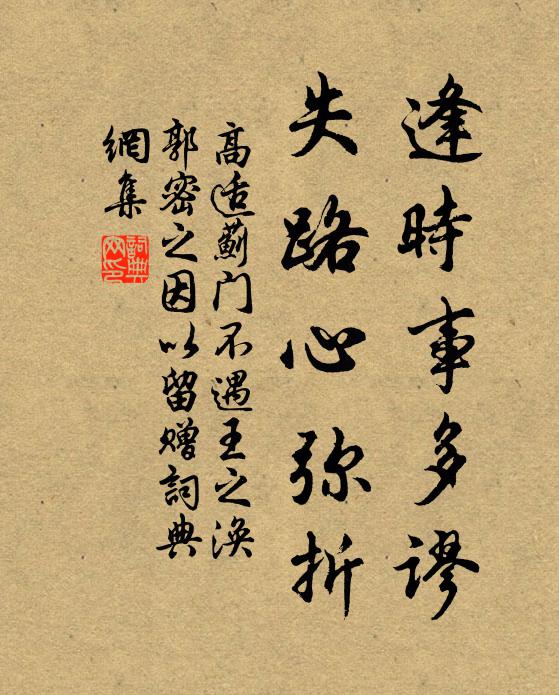 逢時事多謬
失路心弥折
高适薊门不遇王之涣
郭密之因以留赠詞典
網集
詞典网印